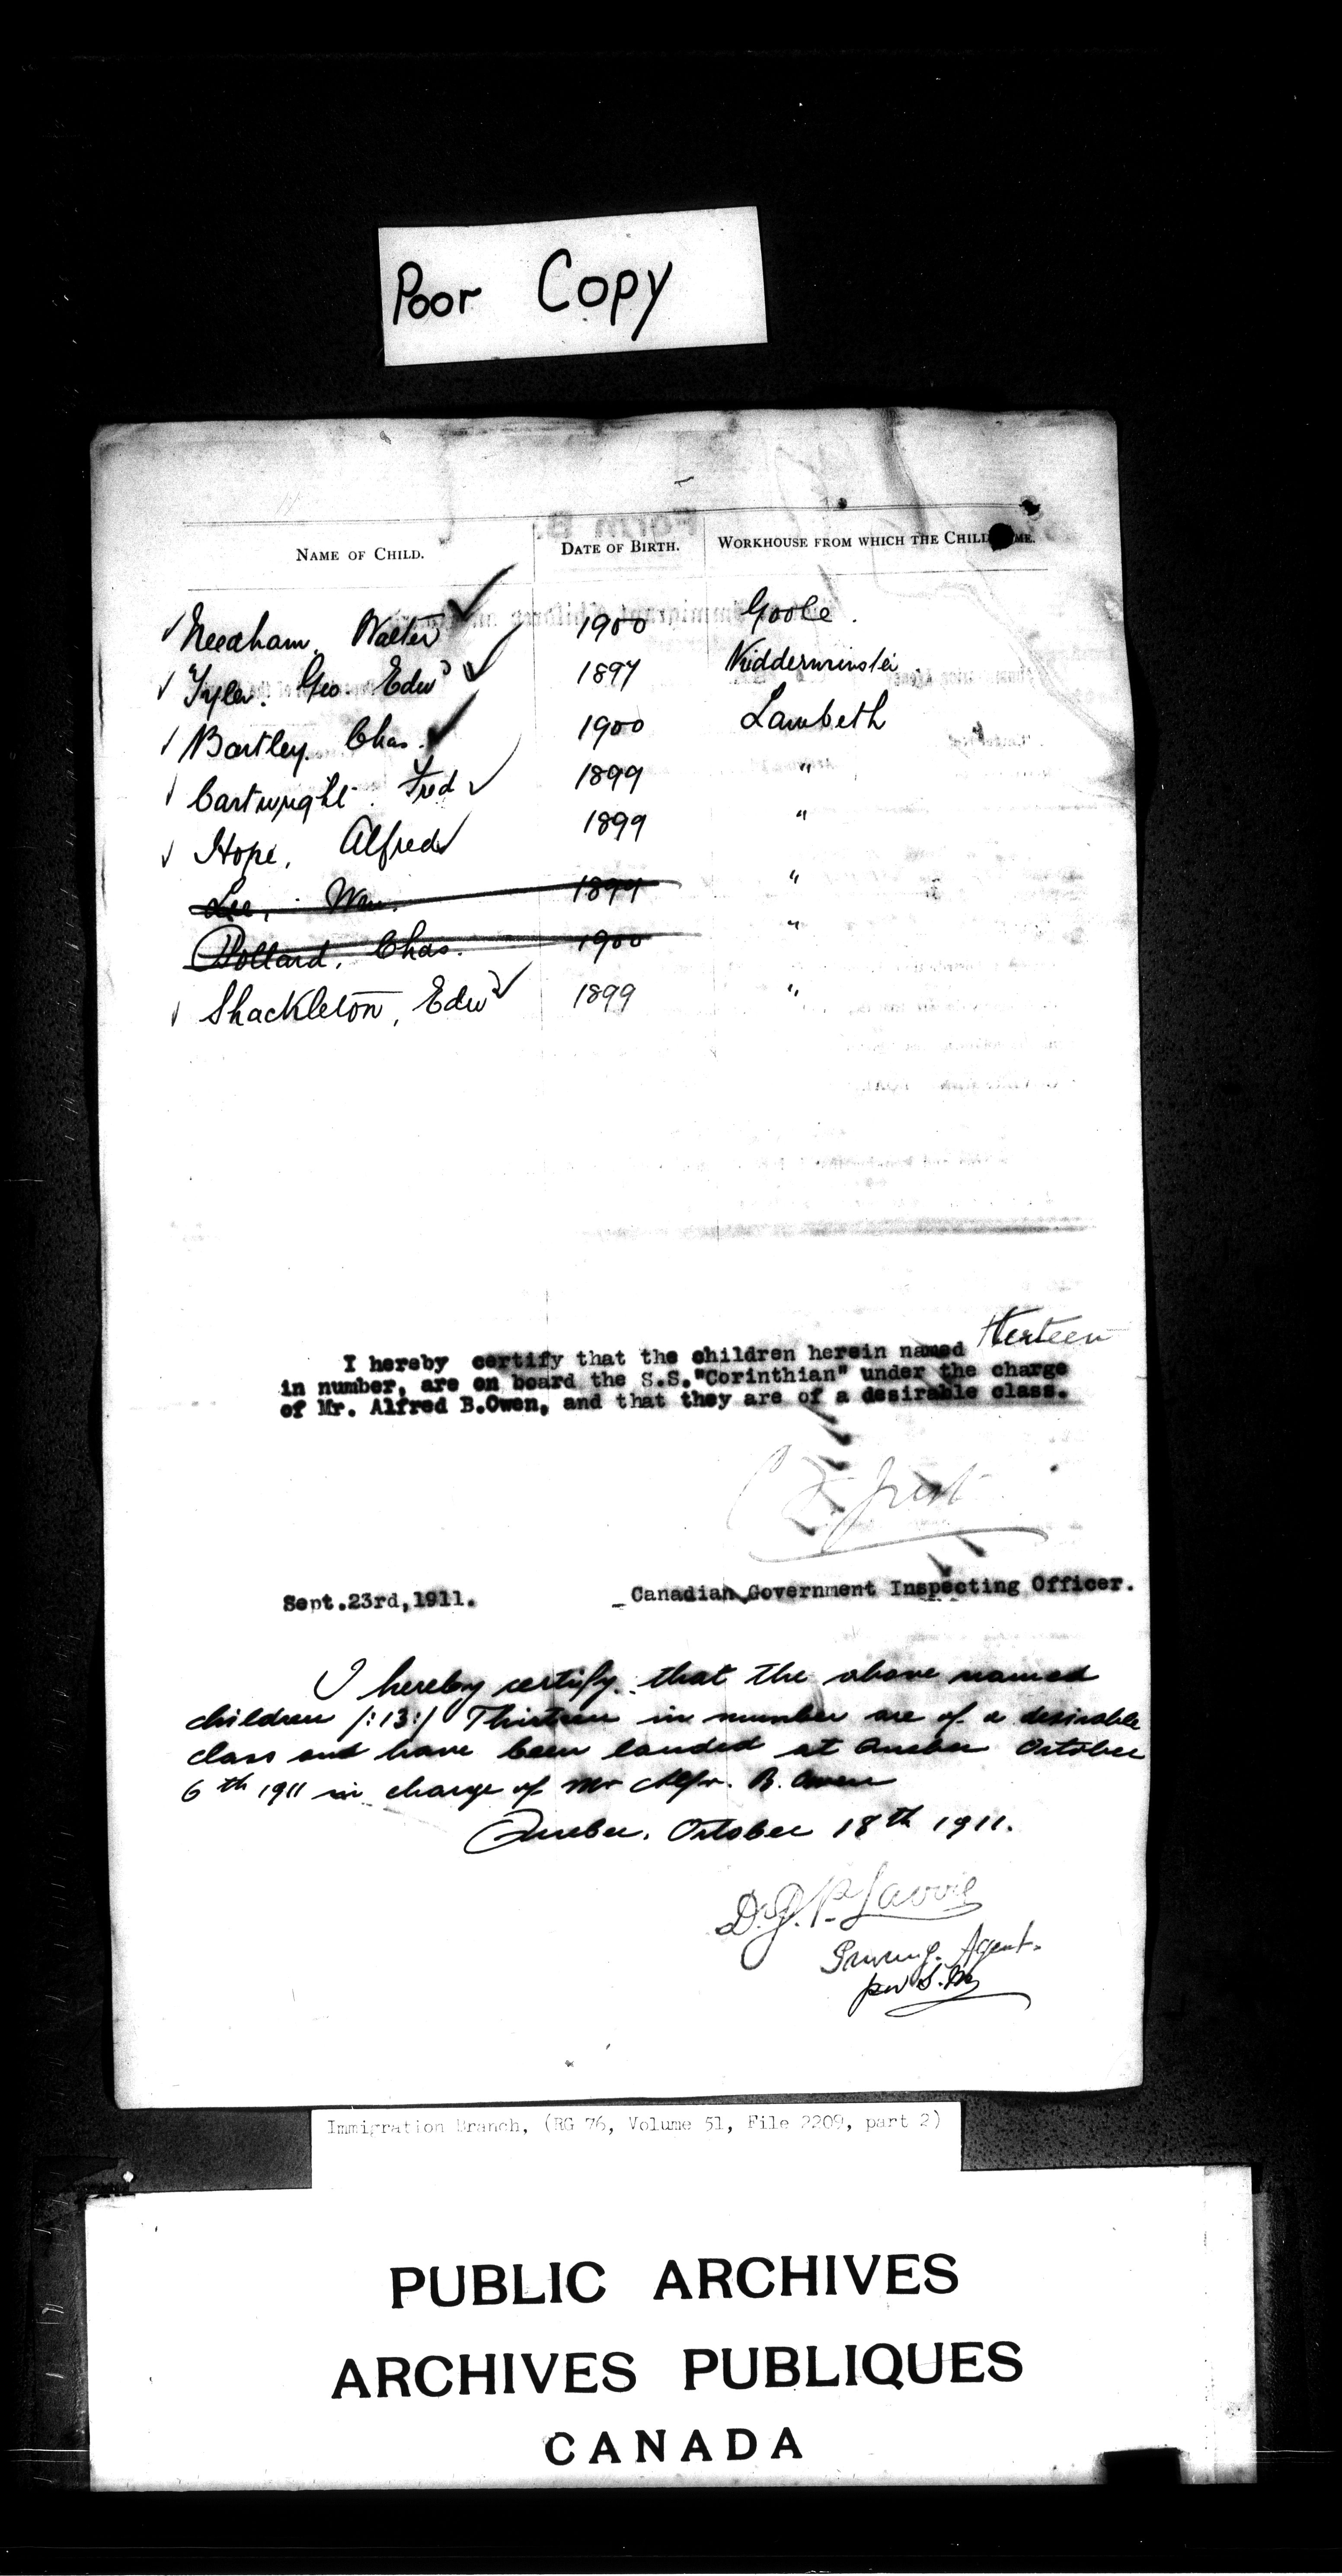 Poor Copy
NAME OF CHILD. DATE OF BIRTH. WORKHOUSE FROM WHICH THE CHILD ME.
Needham, Walter 1900 Goole.
Tyler. Geo Edwd 1897 Kidderminster
Bartley. Chas. 1900 Lambeth
Cartwright. Fred 1899 "
Hope, Alfred 1899 "
Lee, Wm. 1899 "
Pollard, Chas. 1900 "
Shackleton, Edwd 1899 "
thirteen
I hereby certify that the children herein named
in number, are on board the S.S."Corinthian" under the charge
of Mr. Alfred B.Owen, and that they are of a desirable class.
Sept.23rd,1911. Canadian Government Inspecting Officer.
I hereby certify that the above named
children /:13:/ Thirteen in number are of a desirable
class and have been landed at Quebec October
6th 1911 in charge of Mr Alfr. B. Owen
Quebec. October 18th 1911.
Dr. J. P. Lavoie
Immig. Agent.
per S.M.
Immigration Branch, (RG 76, Volume 51, File 2209, part 2)
PUBLIC ARCHIVES
ARCHIVES PUBLIQUES
CANADA